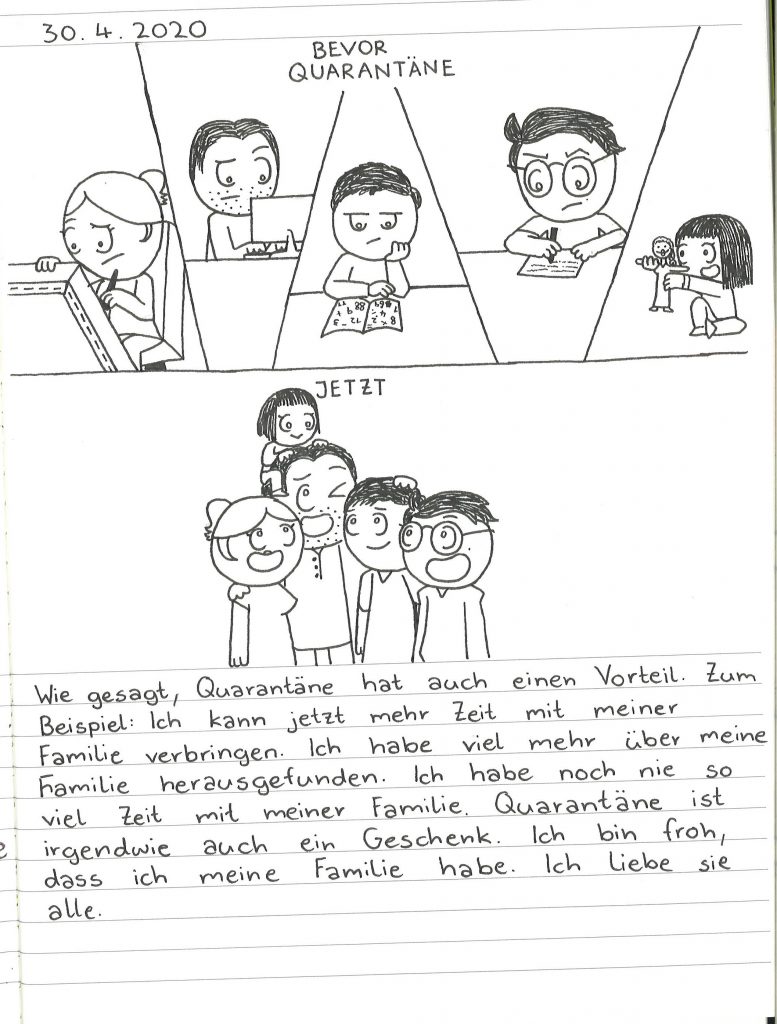 30.4.2020
BEVOR
QUARANTÄNE
JETZT
Wie gesagt, Quarantäne hat auch einen Vorteil. Zum
Beispiel: Ich kann jetzt mehr Zeit mit meiner
Familie verbringen. Ich habe viel mehr über meine
Familie herausgefunden. Ich habe noch nie so
viel Zeit mit meiner Familie. Quarantäne ist
irgendwie auch ein Geschenk. Ich bin froh,
dass ich meine Familie habe. Ich liebe sie
alle.